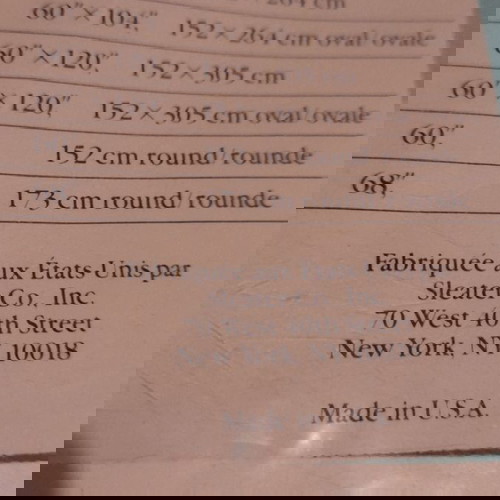 264 cm
60"×104", 152×264 cm oval/ovale
60"×120", 152×305 cm
60"×120", 152×305 cm oval/ovale
60",
152 cm round/rounde
68",
173 cm round/rounde
Fabriquée aux États-Unis par
Sleater Co., Inc.
70 West 40th Street
New York, NY 10018
Made in U.S.A.